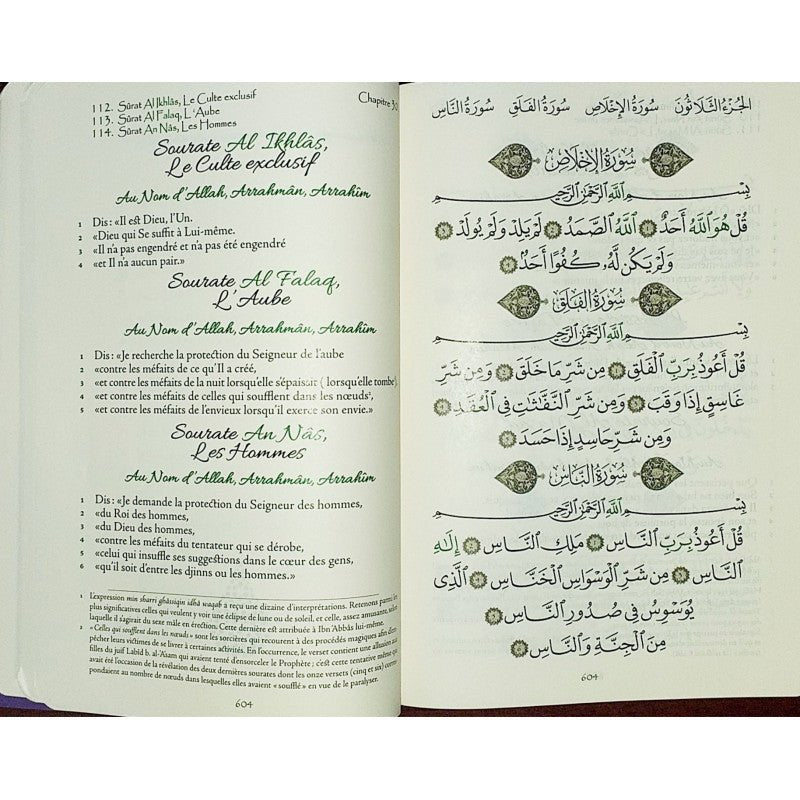 112. Sûrat Al Ikhlâs, Le Culte exclusif
113. Sûrat Al Falaq, L'Aube
114. Sûrat An Nâs, Les Hommes
Chapitre 30
Sourate Al Ikhlâs,
Le Culte exclusif
Au Nom d'Allah, Arrahmân, Arrahîm
1 Dis : «Il est Dieu, l'Un.
2 «Dieu qui Se suffit à Lui-même.
3 «Il n'a pas engendré et n'a pas été engendré
4 «et Il n'a aucun pair.»
Sourate Al Falaq,
L'Aube
Au Nom d'Allah, Arrahmân, Arrahîm
1 Dis : «Je recherche la protection du Seigneur de l'aube
2 «contre les méfaits de ce qu'Il a créé,
3 «et contre les méfaits de la nuit lorsqu'elle s'épaissit ( lorsqu'elle tombe)¹,
4 «et contre les méfaits de celles qui soufflent dans les nœuds²,
5 «et contre les méfaits de l'envieux lorsqu'il exerce son envie.»
Sourate An Nâs,
Les Hommes
Au Nom d'Allah, Arrahmân, Arrahîm
1 Dis : «Je demande la protection du Seigneur des hommes,
2 «du Roi des hommes,
3 «du Dieu des hommes,
4 «contre les méfaits du tentateur qui se dérobe,
5 «celui qui insuffle ses suggestions dans le cœur des gens,
6 «qu'il soit d'entre les djinns ou les hommes.»
1 L'expression min sharri ghâssiqin idhâ waqab a reçu une dizaine d'interprétations. Retenons parmi les
plus significatives celles qui veulent y voir une éclipse de lune ou de soleil, et celle, assez amusante, selon
laquelle il s'agirait du sexe mâle en érection. Cette dernière est attribuée à Ibn 'Abbâs lui-même.
2 « Celles qui soufflent dans les nœuds » sont les sorcières qui recourent à des procédés magiques afin d'em-
pêcher leurs victimes de se livrer à certaines activités. En l'occurrence, le verset contient une allusion aux
filles du juif Labîd b. al-'Asam qui avaient tenté d'ensorceler le Prophète ; c'est cette tentative même qui
avait été l'occasion de la révélation des deux dernières sourates dont les onze versets (cinq et six) corres-
pondaient au nombre de nœuds dans lesquelles elles avaient « soufflé » en vue de le paralyser.
604
الجُزْءُ الثَّلَاثُونَ سُورَةُ الإِخْلَاصِ سُورَةُ الفَلَقِ سُورَةُ النَّاسِ
سُورَةُ الإِخْلَاصِ
بِسْمِ ٱللَّهِ ٱلرَّحْمَٰنِ ٱلرَّحِيمِ
قُلْ هُوَ ٱللَّهُ أَحَدٌ ١ ٱللَّهُ ٱلصَّمَدُ ٢ لَمْ يَلِدْ وَلَمْ يُولَدْ ٣
وَلَمْ يَكُن لَّهُۥ كُفُوًا أَحَدٌ ٤
سُورَةُ الفَلَقِ
بِسْمِ ٱللَّهِ ٱلرَّحْمَٰنِ ٱلرَّحِيمِ
قُلْ أَعُوذُ بِرَبِّ ٱلْفَلَقِ ١ مِن شَرِّ مَا خَلَقَ ٢ وَمِن شَرِّ
غَاسِقٍ إِذَا وَقَبَ ٣ وَمِن شَرِّ ٱلنَّفَّٰثَٰتِ فِي ٱلْعُقَدِ ٤
وَمِن شَرِّ حَاسِدٍ إِذَا حَسَدَ ٥
سُورَةُ النَّاسِ
بِسْمِ ٱللَّهِ ٱلرَّحْمَٰنِ ٱلرَّحِيمِ
قُلْ أَعُوذُ بِرَبِّ ٱلنَّاسِ ١ مَلِكِ ٱلنَّاسِ ٢ إِلَٰهِ
ٱلنَّاسِ ٣ مِن شَرِّ ٱلْوَسْوَاسِ ٱلْخَنَّاسِ ٤ ٱلَّذِي
يُوَسْوِسُ فِي صُدُورِ ٱلنَّاسِ ٥
مِنَ ٱلْجِنَّةِ وَٱلنَّاسِ ٦
604